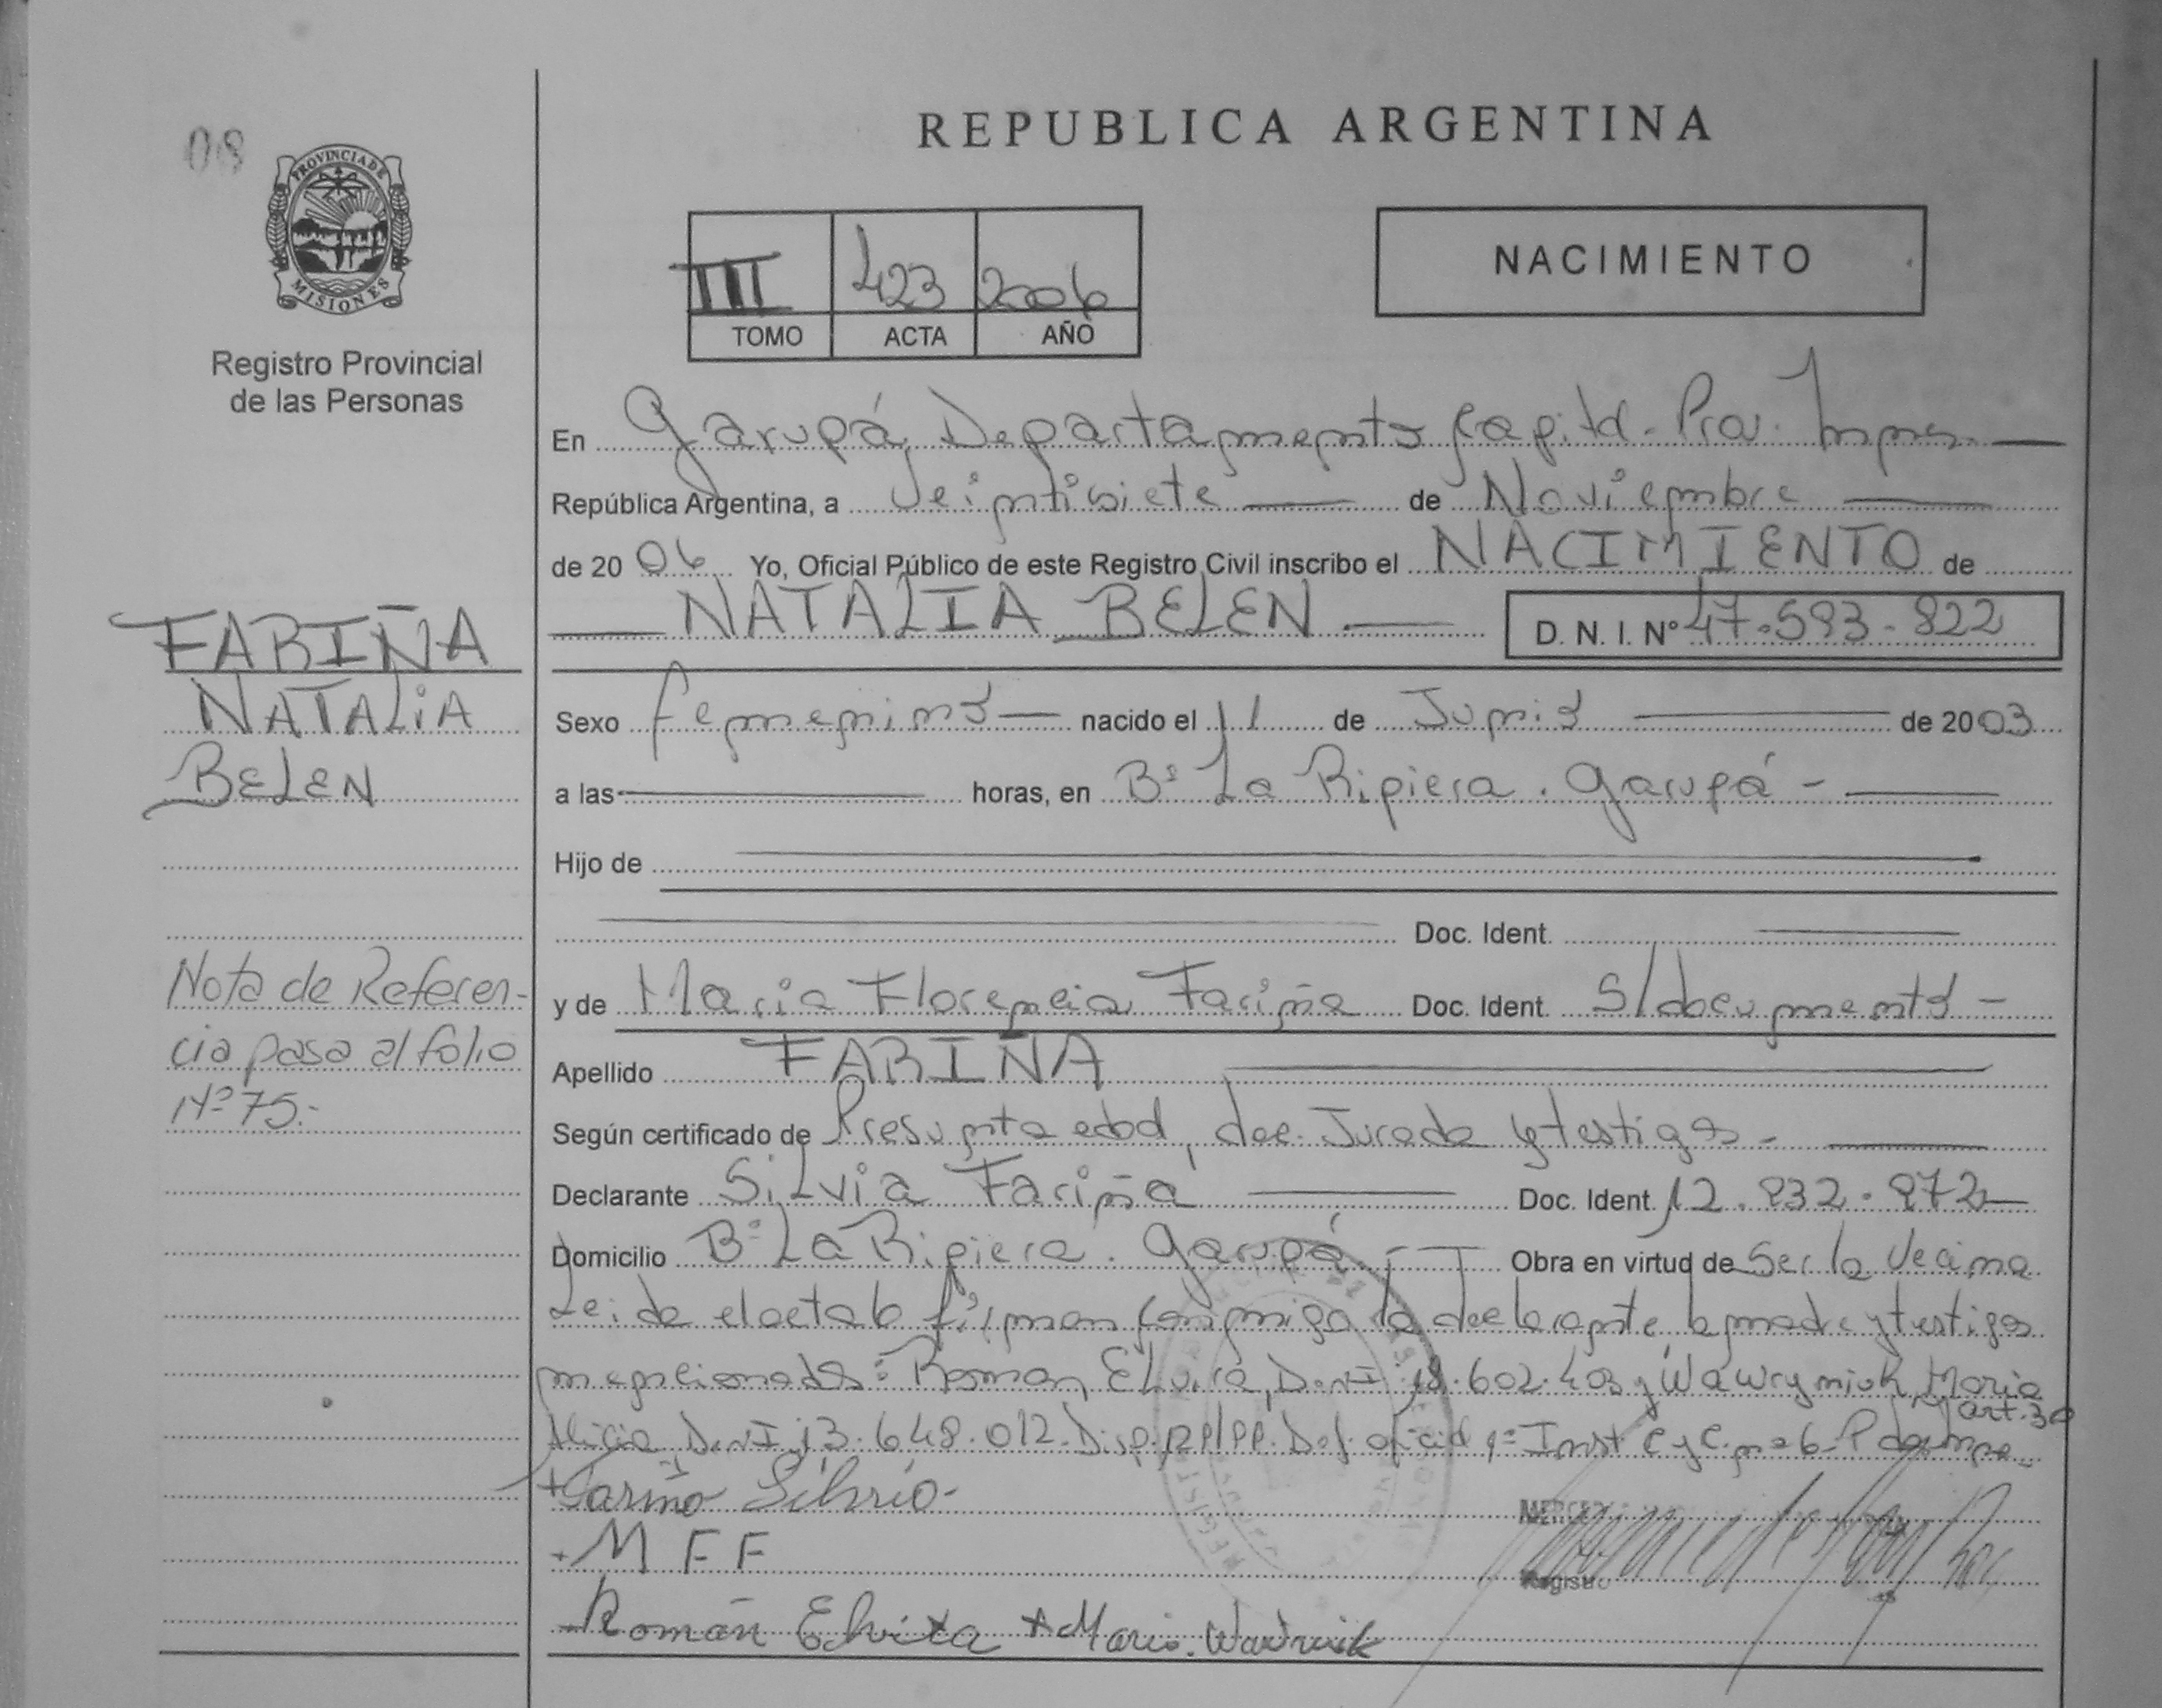 REPUBLICA ARGENTINA
08
PROVINCIA DE
MISIONES
Registro Provincial
de las Personas
III 423 2006
TOMO ACTA AÑO
NACIMIENTO
En Garupá, Departamento Capital - Prov. Mnes.
República Argentina, a Veintisiete de Noviembre
de 2006 Yo, Oficial Público de este Registro Civil inscribo el NACIMIENTO de
NATALIA BELEN D. N. I. Nº 47.593.822
FARIÑA
NATALIA
BELEN
Sexo femenino nacido el 11 de Junio de 2003
a las horas, en Bº La Ripiera . Garupá -
Hijo de
Doc. Ident.
y de Maria Florencia Fariña Doc. Ident. S/documento -
Nota de Referen-
cia pasa al folio
Nº 75.-
Apellido FARIÑA
Según certificado de Presunta edad, dec. Jurada y testigos -
Declarante Silvia Fariña Doc. Ident. 12.832.872
Domicilio Bº La Ripiera . Garupá Obra en virtud de Ser la Vecina
Leida el acta la firman conmigo la declarante, la madre y testigos
mencionados: Roman, Elvira, D.N.I 18.602.403 y Wawryniuk, Maria
Alicia D.N.I 13.648.012. Disp. Def. oficial 1º Inst C y C. nº 6 -
art. 30
Fariña Silvia -
M F F
Román Elvira Maria Wawrniuk
MERCE
Registr